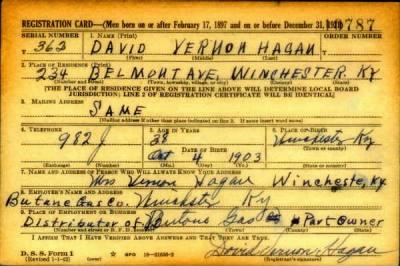 REGISTRATION CARD—(Men born on or after February 17, 1897 and on or before December 31, 1921)
SERIAL NUMBER 1. NAME (Print) ORDER NUMBER
362 DAVID VERNON HAGAN 11787
2. PLACE OF RESIDENCE (Print)
234 BELMONT AVE, WINCHESTER. KY
(Number and street) (Town, township, village, or city) (County) (State)
[THE PLACE OF RESIDENCE GIVEN ON THE LINE ABOVE WILL DETERMINE LOCAL BOARD
JURISDICTION; LINE 2 OF REGISTRATION CERTIFICATE WILL BE IDENTICAL]
3. MAILING ADDRESS
SAME
[Mailing address if other than place indicated on line 2. If same insert word same]
4. TELEPHONE 5. AGE IN YEARS 6. PLACE OF BIRTH
982 J 38 Winchester
DATE OF BIRTH (Town or county)
Oct 4 1903 Ky
(Exchange) (Number) (Mo.) (Day) (Yr.) (State or country)
7. NAME AND ADDRESS OF PERSON WHO WILL ALWAYS KNOW YOUR ADDRESS
Mrs Vernon Hagan Winchester, Ky
8. EMPLOYER'S NAME AND ADDRESS
Butane Gas Co. Winchester Ky
9. PLACE OF EMPLOYMENT OR BUSINESS
Distributor of Butane Gas Part Owner
(Number and street or R. F. D. number) (Town) (County) (State)
I AFFIRM THAT I HAVE VERIFIED ABOVE ANSWERS AND THAT THEY ARE TRUE.
D. S. S. Form 1
(Revised 1-1-42) GPO 16—21630-2 David Vernon Hagan